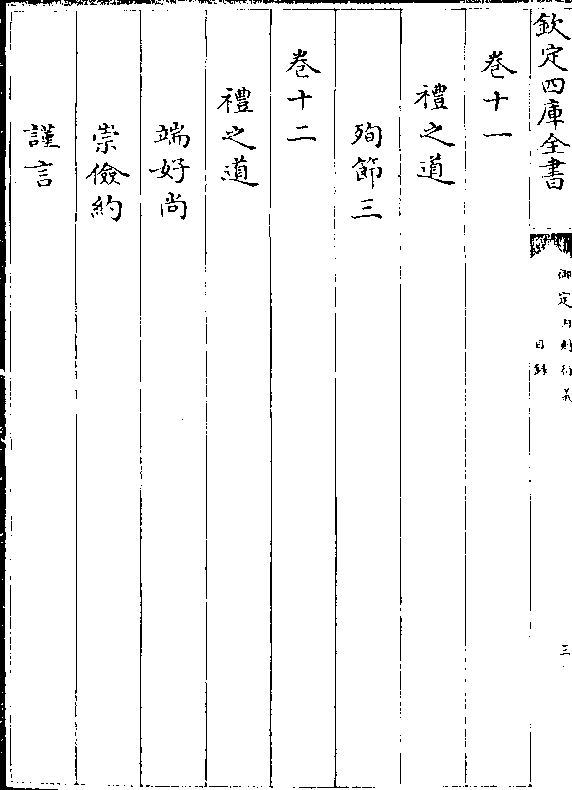 欽定四庫全書
御定內則衍義
目錄
三
卷十一
禮之道
殉節三
卷十二
禮之道
端好尚
崇儉約
謹言